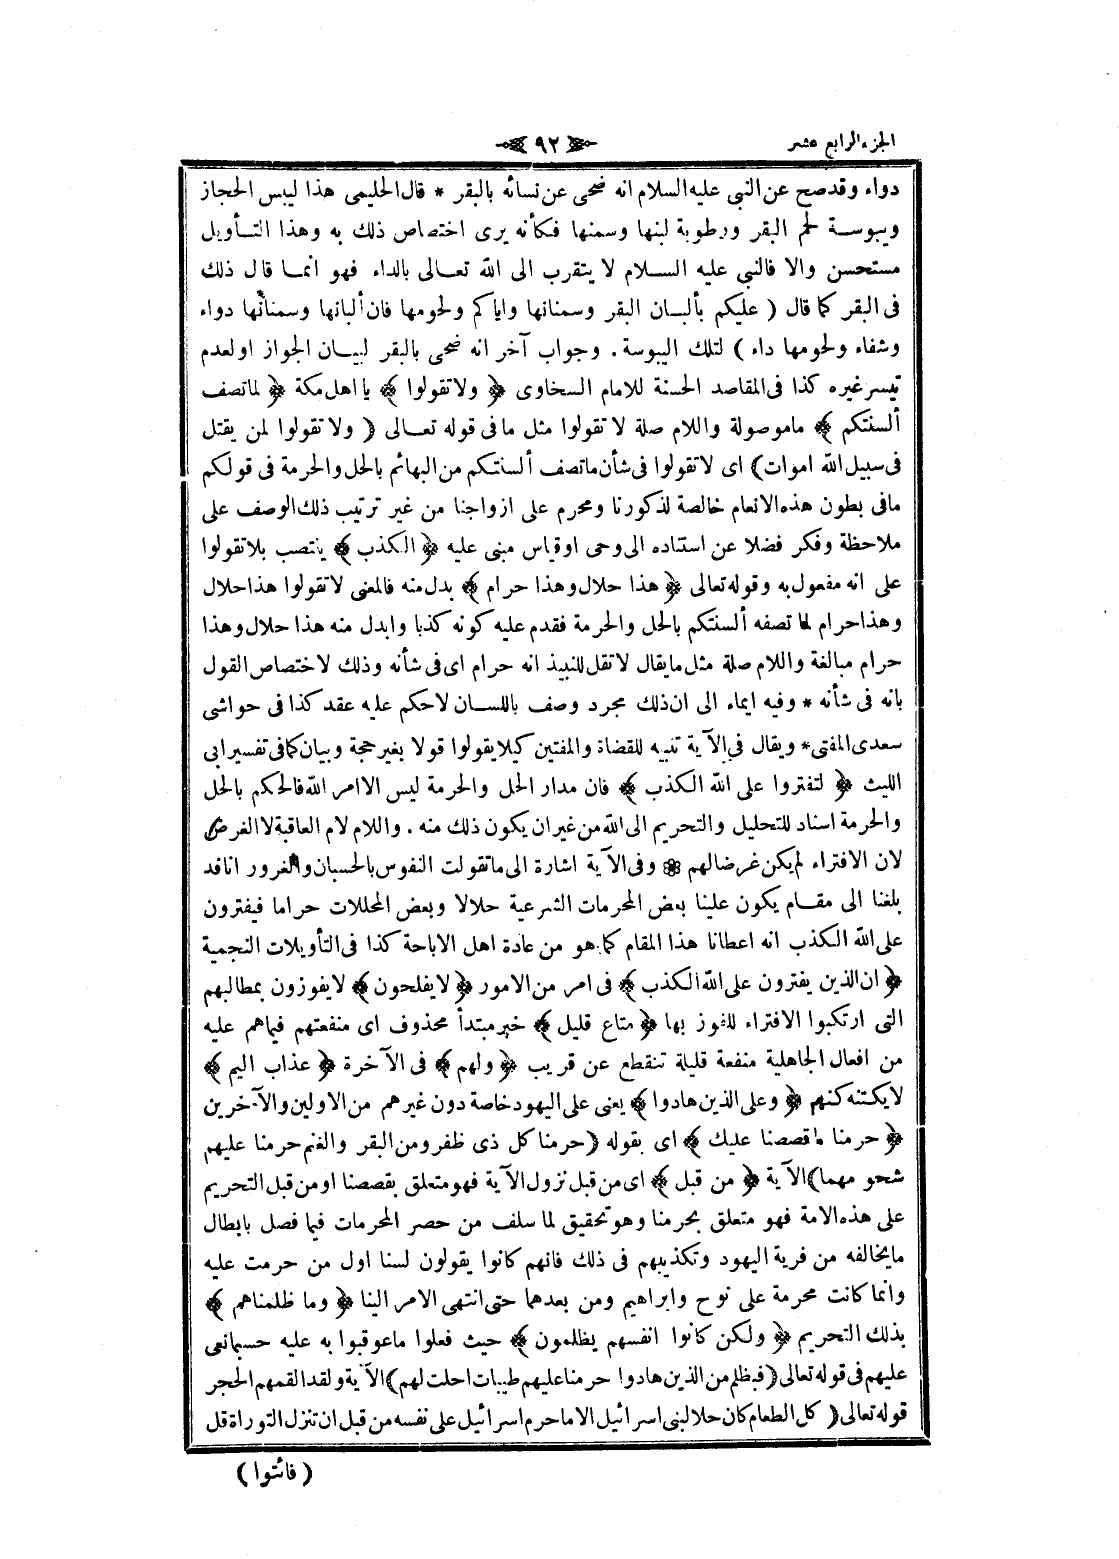 الجزء الرابع عشر
٩٢
دواء وقدصح عن النبى عليه السلام انه ضحى عن نسائه بالبقر * قال الحليمى هذا ليبس الحجاز
ويبوسة لحم البقر ورطوبة لبنها وسمنها فكأنه يرى اختصاص ذلك به وهذا التأويل
مستحسن والا فالنبى عليه السلام لا يتقرب الى الله تعالى بالداء فهو انما قال ذلك
فى البقر كما قال ( عليكم بألبان البقر وسمنانها واياكم ولحومها فان ألبانها وسمنانها دواء
وشفاء ولحومها داء ) لتلك اليبوسة . وجواب آخر انه ضحى بالبقر لبيان الجواز اولعدم
تيسر غيره كذا فى المقاصد الحسنة للامام السخاوى ﴿ ولا تقولوا ﴾ يا اهل مكة ﴿ لما تصف
ألسنتكم ﴾ ماموصولة واللام صلة لا تقولوا مثل ما فى قوله تعالى ( ولا تقولوا لمن يقتل
فى سبيل الله اموات) اى لا تقولوا فى شأن ماتصف ألسنتكم من البهائم بالحل والحرمة فى قولكم
مافى بطون هذه الانعام خالصة لذكورنا ومحرم على ازواجنا من غير ترتيب ذلك الوصف على
ملاحظة وفكر فضلا عن استناده الى وحى اوقياس مبنى عليه ﴿ الكذب ﴾ ينتصب بلا تقولوا
على انه مفعول به وقوله تعالى ﴿ هذا حلال وهذا حرام ﴾ بدل منه فالمعنى لا تقولوا هذا حلال
وهذا حرام لما تصفه ألسنتكم بالحل والحرمة فقدم عليه كونه كذبا وابدل منه هذا حلال وهذا
حرام مبالغة واللام صلة مثل مايقال لا تقل للنبيذ انه حرام اى فى شأنه وذلك لاختصاص القول
بانه فى شأنه * وفيه ايماء الى ان ذلك مجرد وصف باللسان لا حكم عليه عقد كذا فى حواشى
سعدى المفتى * ويقال فى الآية تنبيه للقضاة والمفتين كيلا يقولوا قولا بغير حجة وبيان كما فى تفسير ابى
الليث ﴿ لتفتروا على الله الكذب ﴾ فان مدار الحل والحرمة ليس الا امر الله فالحكم بالحل
والحرمة اسناد للتحليل والتحريم الى الله من غير ان يكون ذلك منه . واللام لام العاقبة لا الغرض
لان الافتراء لم يكن غرضا لهم ❀ وفى الآية اشارة الى ماتقولت النفوس بالحسبان والغرور انا قد
بلغنا الى مقام يكون علينا بعض المحرمات الشرعية حلالا وبعض المحللات حراما فيفترون
على الله الكذب انه اعطانا هذا المقام كما هو من عادة اهل الاباحة كذا فى التأويلات النجمية
﴿ ان الذين يفترون على الله الكذب ﴾ فى امر من الامور ﴿ لا يفلحون ﴾ لا يفوزون بمطالبهم
التى ارتكبوا الافتراء للفوز بها ﴿ متاع قليل ﴾ خبر مبتدأ محذوف اى منفعتهم فيما هم عليه
من افعال الجاهلية منفعة قليلة تنقطع عن قريب ﴿ ولهم ﴾ فى الآخرة ﴿ عذاب اليم ﴾
لا يكتنه كنهم ﴿ وعلى الذين هادوا ﴾ يعنى على اليهود خاصة دون غيرهم من الاولين والآخرين
﴿ حرمنا ما قصصنا عليك ﴾ اى بقوله ( حرمنا كل ذى ظفر ومن البقر والغنم حرمنا عليهم
شحو مهما) الآية ﴿ من قبل ﴾ اى من قبل نزول الآية فهو متعلق بقصصنا او من قبل التحريم
على هذه الامة فهو متعلق بحرمنا وهو تحقيق لما سلف من حصر المحرمات فيما فصل بابطال
مايخالفه من فرية اليهود وتكذيبهم فى ذلك فانهم كانوا يقولون لسنا اول من حرمت عليه
وانما كانت محرمة على نوح وابراهيم ومن بعدهما حتى انتهى الامر الينا ﴿ وما ظلمناهم ﴾
بذلك التحريم ﴿ ولكن كانوا انفسهم يظلمون ﴾ حيث فعلوا ماعوقبوا به عليه حسبما نعى
عليهم فى قوله تعالى ( فبظلم من الذين هادوا حرمنا عليهم طيبات احلت لهم ) الآية ولقد القمهم الحجر
قوله تعالى ( كل الطعام كان حلا لبنى اسرائيل الا ما حرم اسرائيل على نفسه من قبل ان تنزل التوراة قل
( فائتوا )